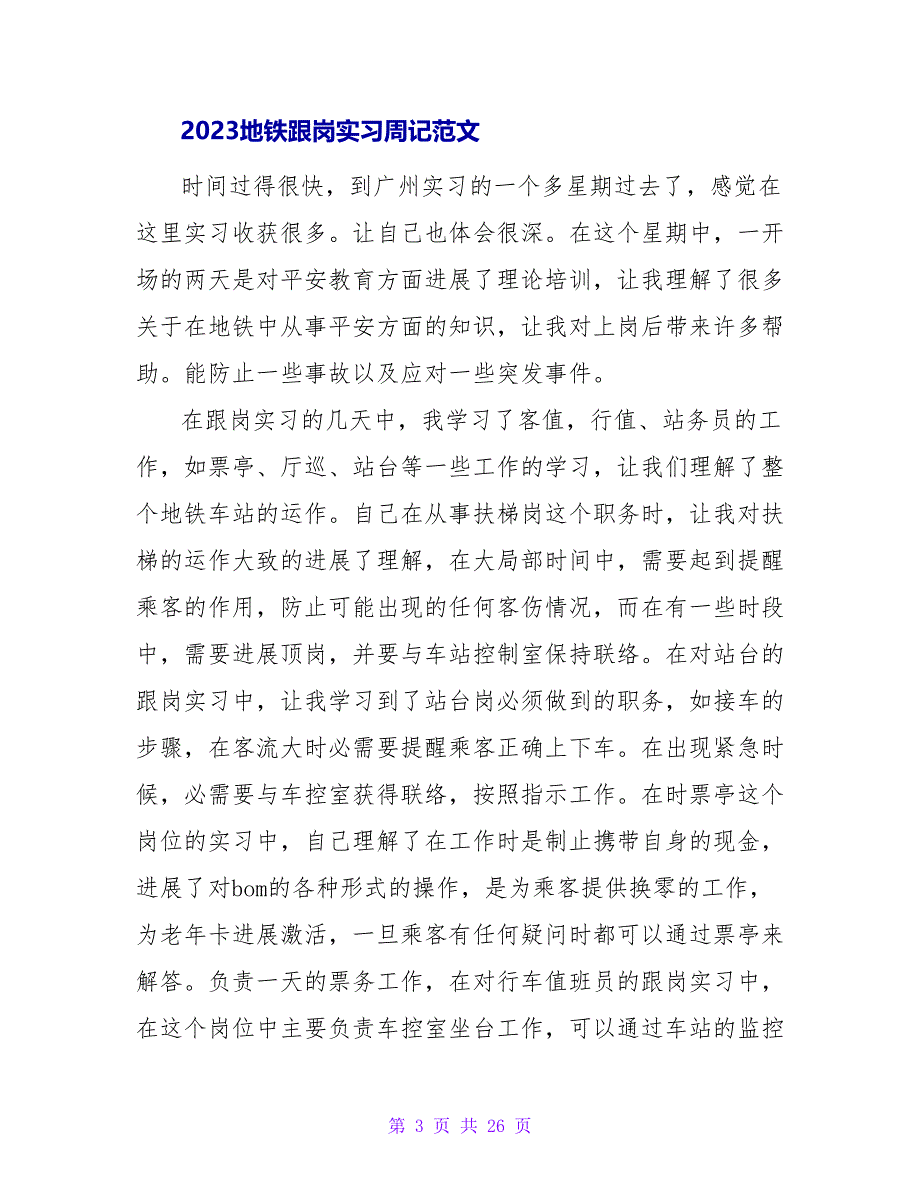 2023地铁跟岗实习周记范文
时间过得很快，到广州实习的一个多星期过去了，感觉在
这里实习收获很多。让自己也体会很深。在这个星期中，一开
场的两天是对平安教育方面进展了理论培训，让我理解了很多
关于在地铁中从事平安方面的知识，让我对上岗后带来许多帮
助。能防止一些事故以及应对一些突发事件。
在跟岗实习的几天中，我学习了客值，行值、站务员的工
作，如票亭、厅巡、站台等一些工作的学习，让我们理解了整
个地铁车站的运作。自己在从事扶梯岗这个职务时，让我对扶
梯的运作大致的进展了理解，在大局部时间中，需要起到提醒
乘客的作用，防止可能出现的任何客伤情况，而在有一些时段
中，需要进展顶岗，并要与车站控制室保持联络。在对站台的
跟岗实习中，让我学习到了站台岗必须做到的职务，如接车的
步骤，在客流大时必需要提醒乘客正确上下车。在出现紧急时
候，必需要与车控室获得联络，按照指示工作。在时票亭这个
岗位的实习中，自己理解了在工作时是制止携带自身的现金，
进展了对bom的各种形式的操作，是为乘客提供换零的工作，
为老年卡进展激活，一旦乘客有任何疑问时都可以通过票亭来
解答。负责一天的票务工作，在对行车值班员的跟岗实习中，
在这个岗位中主要负责车控室坐台工作，可以通过车站的监控
第 3 页 共 26 页